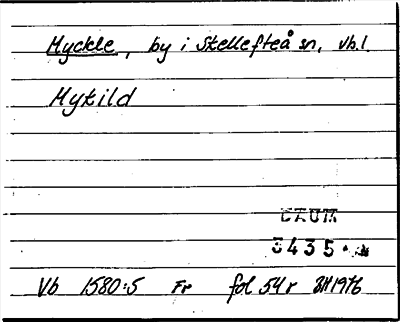 Myckle, by i Skellefteå sn, Vb.l.
Mykild
DAUM
3435
Vb 1580:5 Fr fol 54r 1976